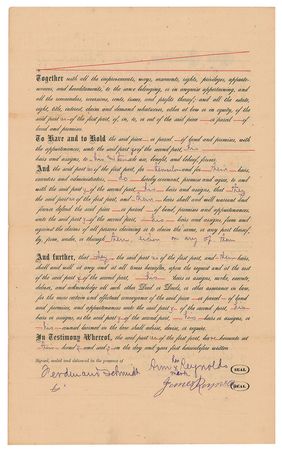 Together with all the improvements, ways, easements, rights, privileges, appurte-
nances, and hereditaments, to the same belonging, or in anywise appertaining, and
all the remainders, reversions, rents, issues, and profits thereof; and all the estate,
right, title, interest, claim and demand whatsoever, either at law or in equity, of the
said part of the first part, of, in, to, or out of the said piece or parcel of
land and premises.
To Have and to Hold the said piece or parcel of land and premises, with
the appurtenances, unto the said part of the second part, his
heirs and assigns, to his and their sole use, benefit, and behoof, forever.
And the said part of the first part, for and for their heirs,
executors and administrators, do hereby covenant, promise and agree, to and
with the said part of the second part, his heirs and assigns, that they
the said part of the first part, and their heirs shall and will warrant and
forever defend the said piece or parcel of land and premises, and appurtenances,
unto the said part of the second part, his heirs and assigns, from and
against the claims of all persons claiming or to claim the same, or any part thereof,
by, from, under, or through them, or any of them
And further, that they the said part of the first part, and their heirs,
shall and will at any and at all times hereafter, upon the request and at the cost
of the said part of the second part, his heirs or assigns, make, execute,
deliver, and acknowledge all such other Deed or Deeds, or other assurance in law,
for the more certain and effectual conveyance of the said piece or parcel of land
and premises, and appurtenances, unto the said part of the second part, his
heirs or assigns, as the said part of the second part, his heirs or assigns, or
his counsel learned in the law shall advise, devise, or require.
In Testimony Whereof, the said part of the first part, have hereunto set
their hand and seal on the day and year first hereinbefore written.
Signed, sealed and delivered in the presence of
Ferdinand Schmidt
her
Reynolds
mark
SEAL
James Reynolds
SEAL